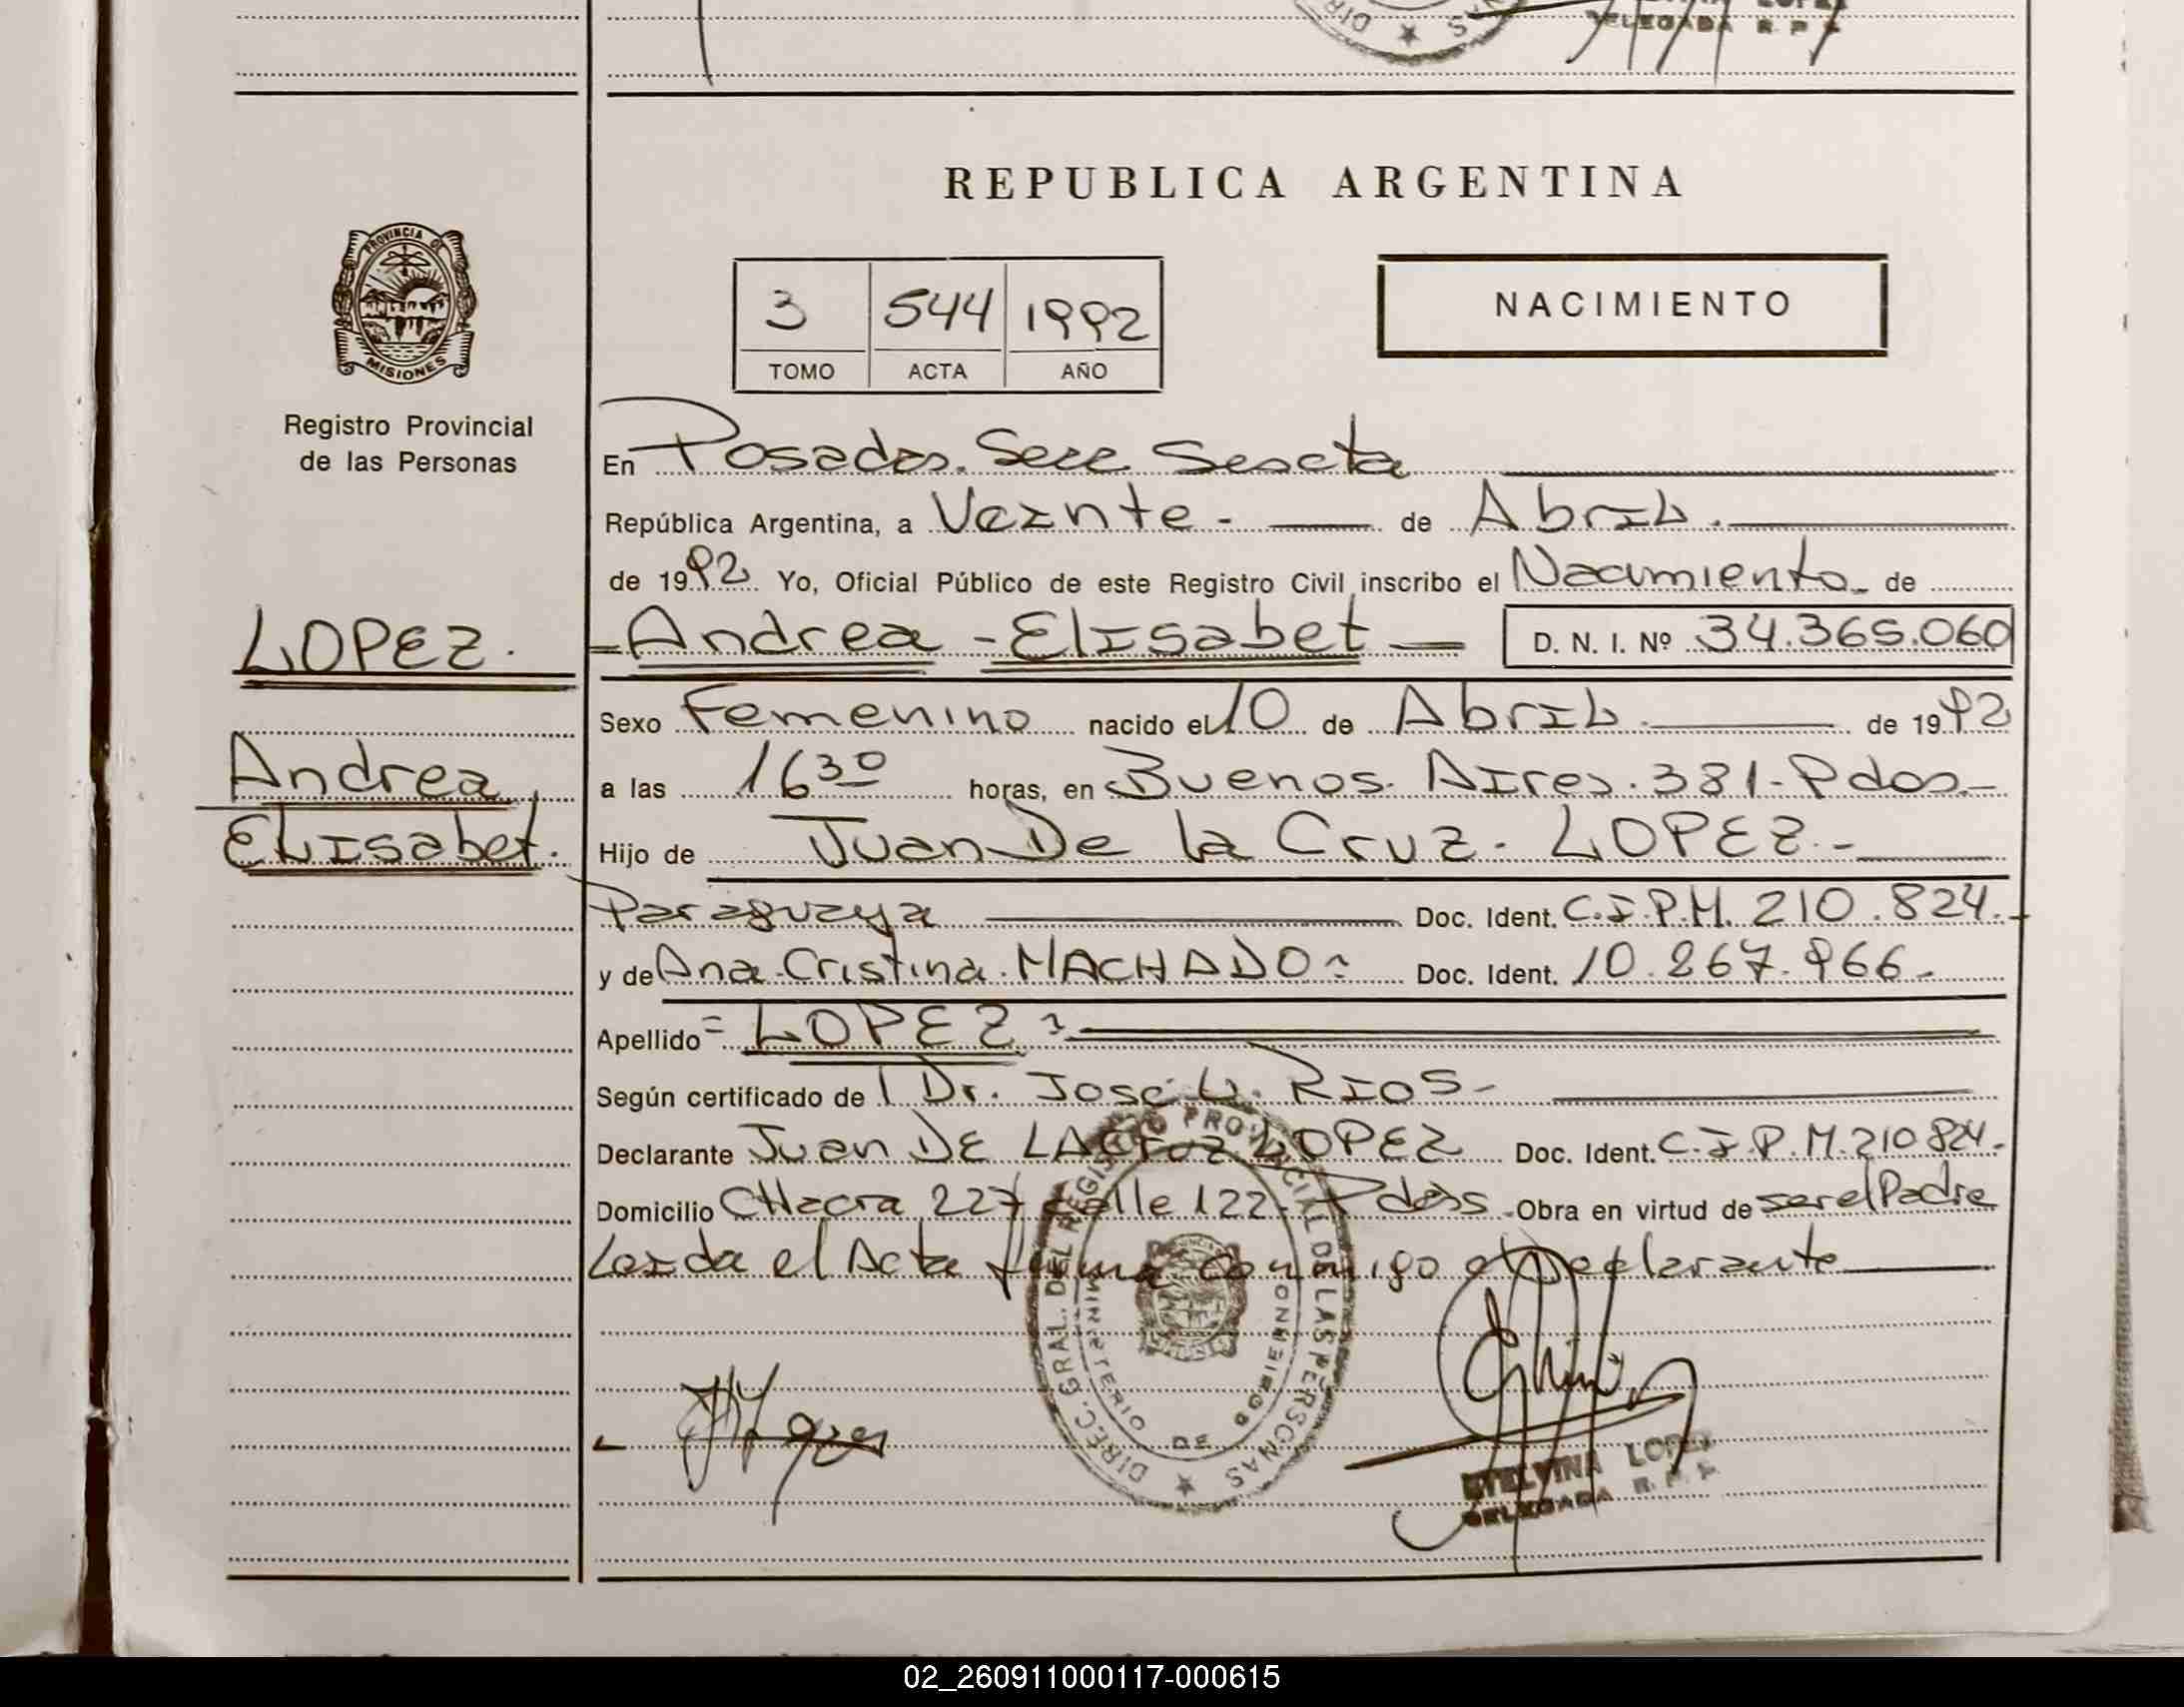 DELEGADA R. P.
PROVINCIA DE
MISIONES
Registro Provincial
de las Personas
LOPEZ.
Andrea
Elisabet.
REPUBLICA ARGENTINA
3 544 1992
TOMO ACTA AÑO
NACIMIENTO
En Posadas. Secc Sexta
República Argentina, a Veinte - de Abril.
de 1992 Yo, Oficial Público de este Registro Civil inscribo el Nacimiento de
- Andrea - Elisabet - D. N. I. Nº 34.365.060
Sexo Femenino nacido el 10 de Abril. de 1992
a las 16 30 horas, en Buenos. Aires. 381 - Pdas.-
Hijo de Juan De la Cruz. LOPEZ.-
Paraguaya Doc. Ident. C.I.P.M. 210.824.-
y de Ana Cristina. MACHADO Doc. Ident. 10.267.966.-
Apellido = LOPEZ
Según certificado de Dr. José L. RIOS-
Declarante Juan DE LA Cruz LOPEZ Doc. Ident. C.I.P.M. 210824.
Domicilio CHacra 227 calle 122. Pdas. Obra en virtud de ser el Padre
Leida el Acta firma conmigo el Declarante
DIREC. GRAL. DEL REGISTRO PROVINCIAL DE LAS PERSONAS
MINISTERIO DE GOBIERNO
LOPEZ
DELEGADA R. P.
02_260911000117-000615